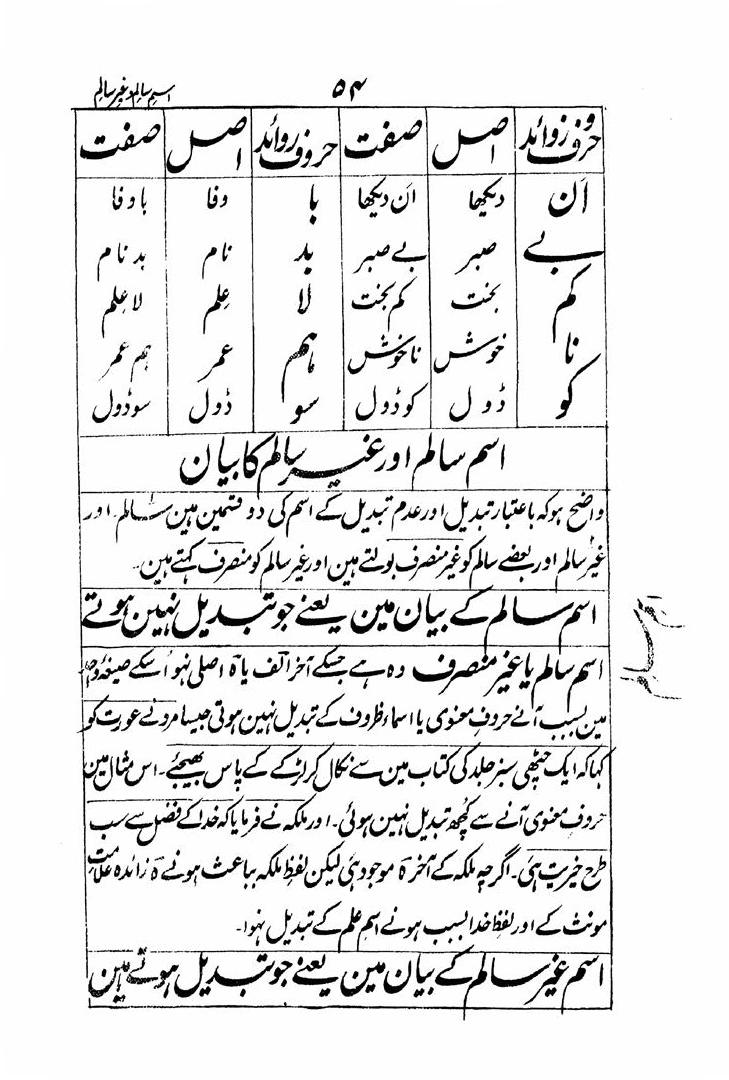 ۵۴
اسم سالم و غیر سالم
حروف زوائد اصل صفت حروف زوائد اصل صفت
اَن دیکھا اَن دیکھا با وفا با وفا
بے صبر بے صبر بد نام بد نام
کم بخت کم بخت لا عِلم لا عِلم
نا خوش ناخوش ہم عمر ہم عمر
کو ڈول کو ڈول سو ڈول سو ڈول
اسم سالم اور غیر سالم کا بیان
واضح ہو کہ باعتبار تبدیل اور عدم تبدیل کے اسم کی دو قسمین ہین سالم۔ اور
غیر سالم اور بعضے سالم کو غیر منصرف بولتے ہین اور غیر سالم کو منصرف کہتے ہین۔
اسم سالم کے بیان مین یعنے جو تبدیل نہین ہوتے
اسم سالم یا غیر منصرف وہ ہے جسکے آخر الف یا ہ اصلی نہو اُسکے صیغۂ واحد
مین بسبب آنے حروف معنوی یا اسماء ظروف کے تبدیل نہین ہوتی جیسا مرد نے عورت کو
کہا کہ ایک چٹھی سبز جلد کی کتاب مین سے نکال کر لڑکے کے پاس بھیجئے۔ اس مثال مین
حروف معنوی آنے سے کُچھ تبدیل نہین ہوئی۔ اور ملکہ نے فرمایا کہ خدا کے فضل سے سب
طرح خیریت ہئی۔ اگرچہ ملکہ کے آخر ہ موجود ہئی لیکن لفظ ملکہ بباعث ہونے ہ زائدہ علامت
مونث کے اور لفظ خدا بسبب ہونے اسم علم کے تبدیل نہوا۔
اسم غیر سالم کے بیان مین یعنے جو تبدیل ہوتے ہین
اسم سالم